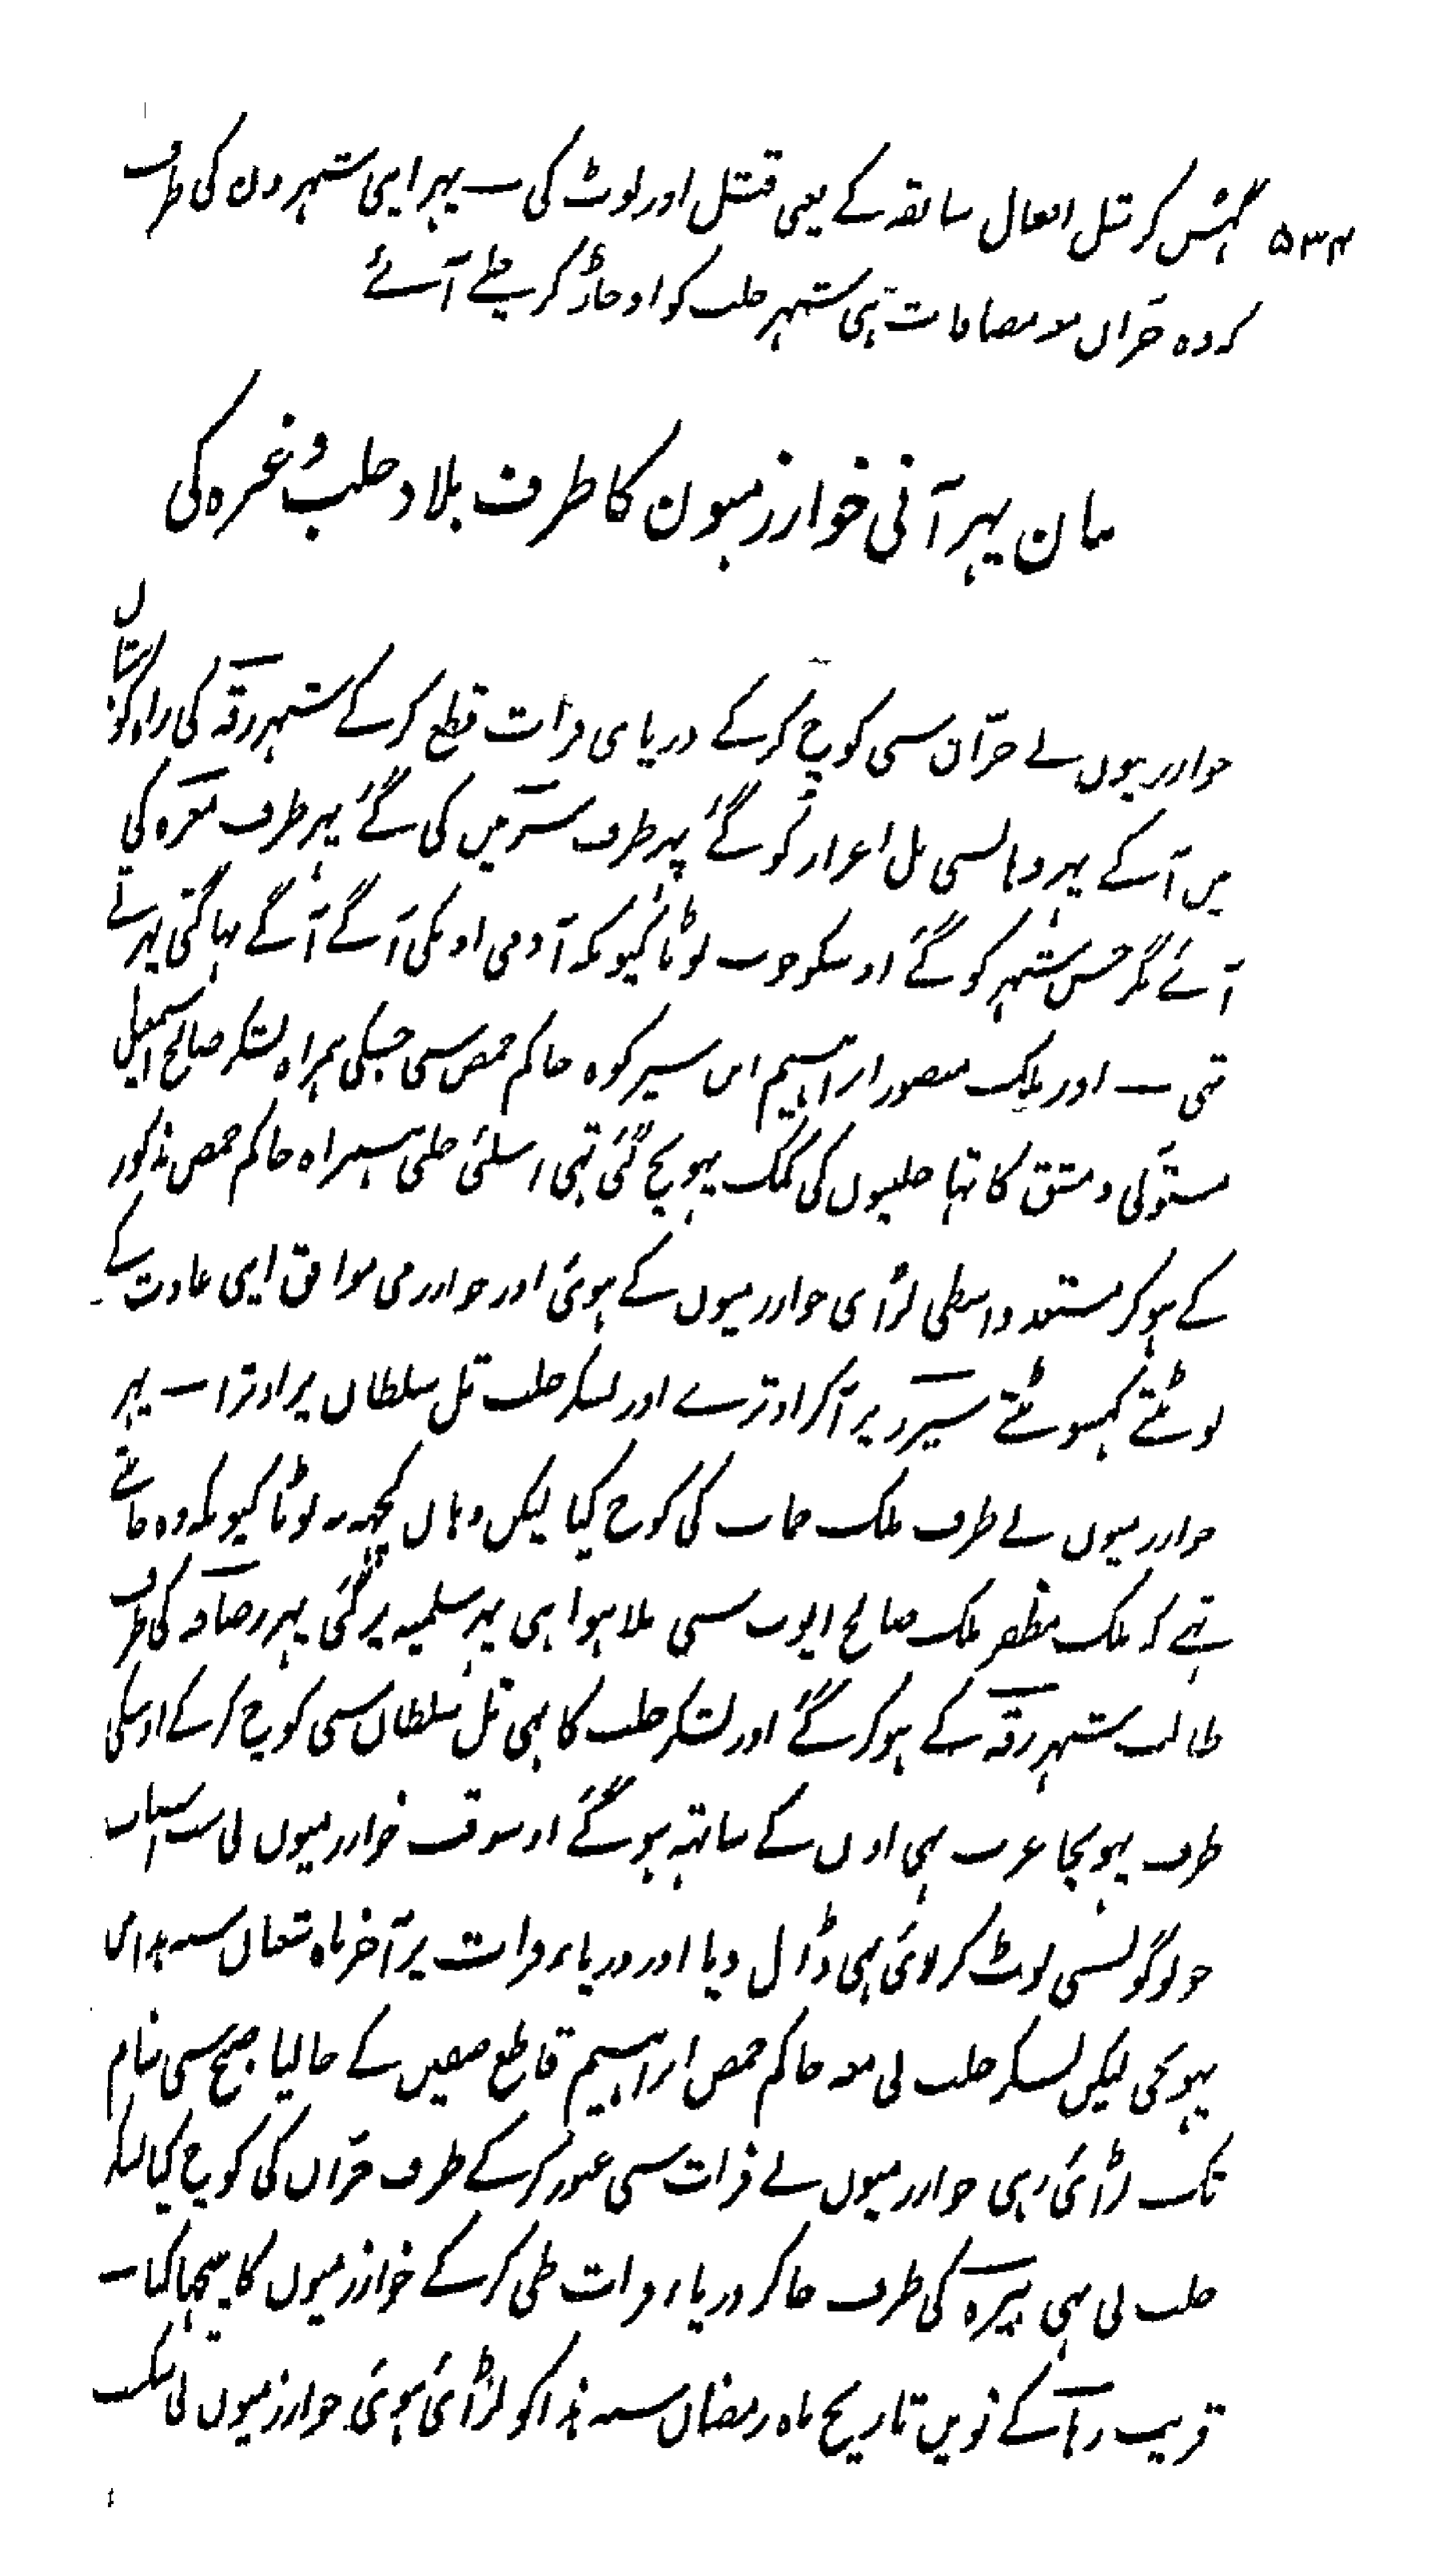 ۵۳۴ گہس کر مثل افعال سابقہ کے یعنی قتل اور لوٹ کی ــ پہر اپنی شہرون کی طرف
کہ وہ حران معہ مضافات تہی شہر حلب کو اوجاڑ کر چلے آئے
بیان پہر آنی خوارزمیون کا طرف بلاد حلب وغیرہ کی
خوارزمیوں نے حرّان سی کوچ کر کے دریای فرات قطع کر کے شہر رقہ کی راہ کو
میں آ کے پہر وہانسی تل اعزاز کو گئے پہر طرف سرمیں کی گئے پہر طرف معرہ کی
آئے مگر جس شہر کو گئے اوسکو خوب لوٹا کیونکہ آدمی اونکی آگے آگے بہاگتی پہرتے
تہی ــ اور ملک منصور ابراہیم ابن شیرکوہ حاکم حمص سی جسکی ہمراہ لشکر صالح اسمعیل
مستولی دمشق کا تہا حلبیوں کی کمک پہونچ گئی تہی اسلئی حلبی ہمراہ حاکم حمص مذکور
کے ہو کر مستعد واسطی لڑائی خوارزمیوں کے ہوئی اور خوارزمی موافق اپنی عادت کے
لوٹتے کہسوٹتے شیزر پر آ کر اوترے اور لشکر حلب تل سلطان پر اوترا ــ پہر
خوارزمیوں نے طرف ملک حمات کی کوچ کیا لیکن وہاں کچہہ نہ لوٹا کیونکہ وہ جانتے
تہے کہ ملک مظفر ملک صالح ایوب سی ملا ہوا ہی پہر سلمیہ پر گئی پہر رصافہ کی طرف
طالب شہر رقہ کے ہو کر گئے اور لشکر حلب کا بہی تل سلطان سی کوچ کر کے اونکی
طرف پہونچا عرب بہی اون کے ساتہہ ہو گئے اوسوقت خوارزمیوں نی سب اسباب
جو لوگونسی لوٹ کر لائی تہی ڈال دیا اور دریاء فرات پر آخر ماہ شعبان سنہ ہذا میں
پہونچی لیکن لشکر حلب نی معہ حاکم حمص ابراہیم قاطع صفین کے جا لیا صبح سی شام
تک لڑائی رہی خوارزمیوں نے فرات سی عبور کر کے طرف حرّان کی کوچ کیا لشکر
حلب نی بہی بیرہ کی طرف جا کر دریاء فرات طی کر کے خوارزمیوں کا پیچہا کیا ــ
قریب رہا کے نویں تاریخ ماہ رمضان سنہ ہذا کو لڑائی ہوئی خوارزمیوں نی شکست